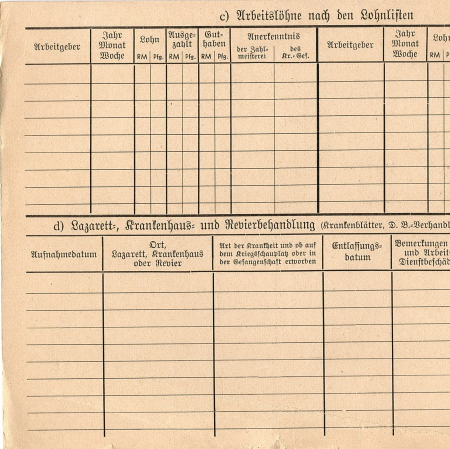 c) Arbeitslöhne nach den Lohnlisten
Arbeitgeber
Jahr
Monat
Woche
Lohn
RM Pfg.
Ausge-
zahlt
RM Pfg.
Gut-
haben
RM Pfg.
Anerkenntnis
der Zahl-
meisterei
des
Kr.-Gef.
Arbeitgeber
Jahr
Monat
Woche
Loh
RM
d) Lazarett-, Krankenhaus- und Revierbehandlung (Krankenblätter, D. B.-Verhandl
Aufnahmedatum
Ort,
Lazarett, Krankenhaus
oder Revier
Art der Krankheit und ob auf
dem Kriegsschauplatz oder in
der Gefangenschaft erworben
Entlassungs-
datum
Bemerkungen
und Arbeit
Dienstbeschäd